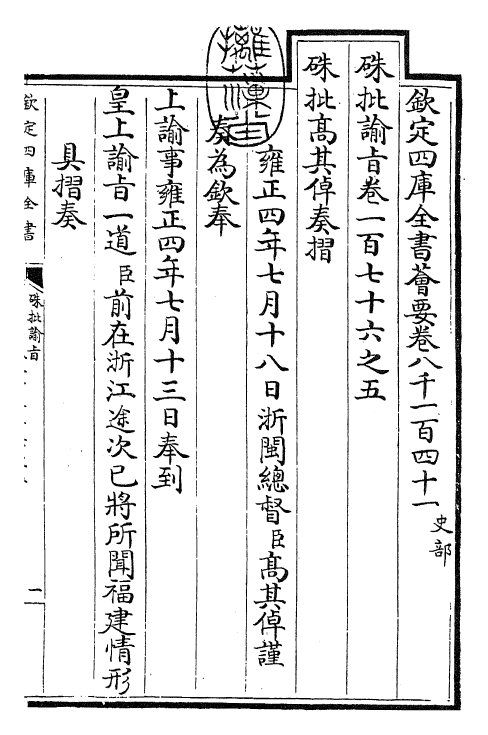 欽定四庫全書薈要卷八千一百四十一 史部
硃批諭旨卷一百七十六之五
硃批髙其倬奏摺
雍正四年七月十八日浙閩總督臣髙其倬謹
奏為欽奉
上諭事雍正四年七月十三日奉到
皇上諭旨一道臣前在浙江途次已將所聞福建情形
具摺奏
欽定四庫全書
硃批諭旨
一